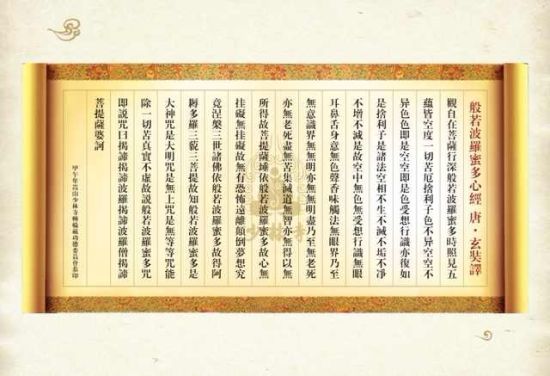 般若波羅蜜多心經 唐·玄奘譯
觀自在菩薩行深般若波羅蜜多時照見五
蘊皆空度一切苦厄捨利子色不异空空不
异色色即是空空即是色受想行識亦復如
是捨利子是諸法空相不生不滅不垢不凈
不增不減是故空中無色無受想行識無眼
耳鼻舌身意無色聲香味觸法無眼界乃至
無意識界無無明亦無無明盡乃至無老死
亦無老死盡無苦集滅道無智亦無得以無
所得故菩提薩埵依般若波羅蜜多故心無
挂礙無挂礙故無有恐怖遠離顛倒夢想究
竟涅槃三世諸佛依般若波羅蜜多故得阿
耨多羅三藐三菩提故知般若波羅蜜多是
大神咒是大明咒是無上咒是無等等咒能
除一切苦真實不虛故說般若波羅蜜多咒
即說咒曰揭諦揭諦波羅揭諦波羅僧揭諦
菩提薩婆訶
甲午年嵩山少林寺轉輪藏功德委員會恭印